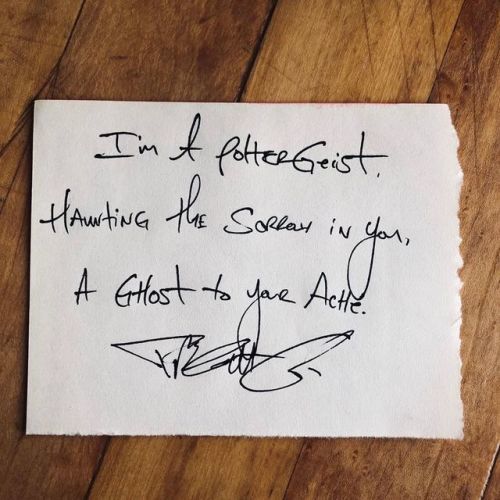 I'm A PolterGeist,
HAUNTING tHE SORROW iN you,
A GHOSt to youR ACHE.